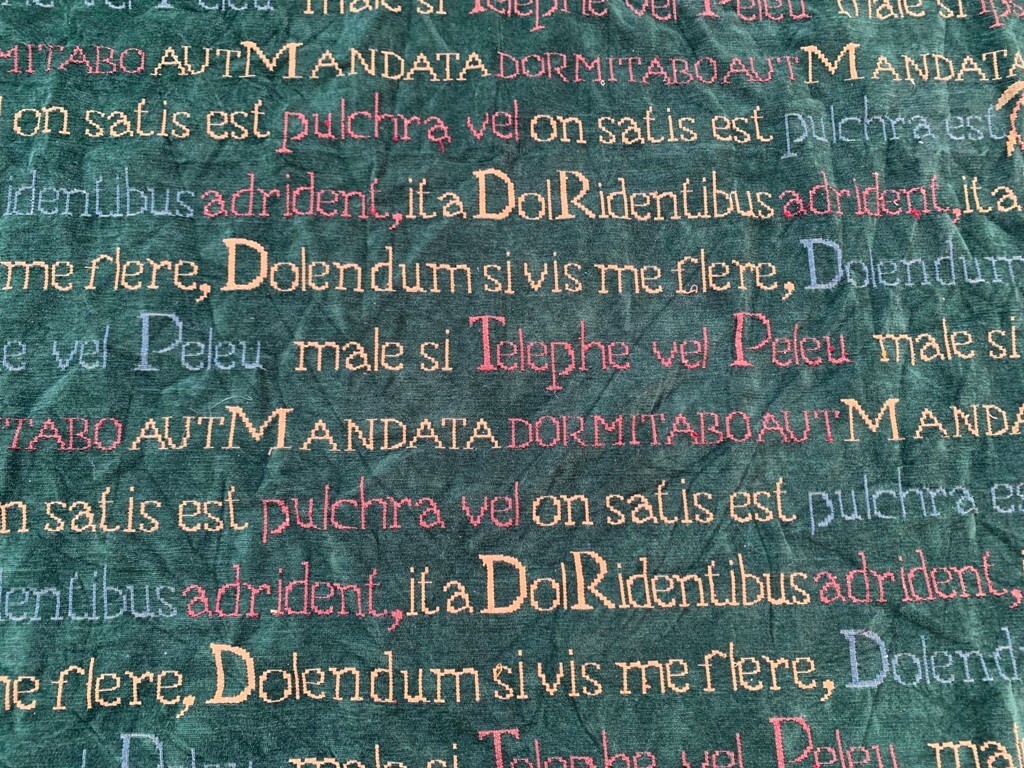 vel Peleu male si Telephe vel Peleu male si
MITABO AUT MANDATA DORMITABO AUT MANDATA
on satis est pulchra vel on satis est pulchra est
identibus adrident, ita Dol Ridentibus adrident, ita
me flere, Dolendum si vis me flere, Dolendum
e vel Peleu male si Telephe vel Peleu male si
TABO AUT MANDATA DORMITABO AUT MANDA
n satis est pulchra vel on satis est pulchra es
dentibus adrident, ita Dol Ridentibus adrident,
me flere, Dolendum si vis me flere, Dolend
male si Telephe vel Peleu ma